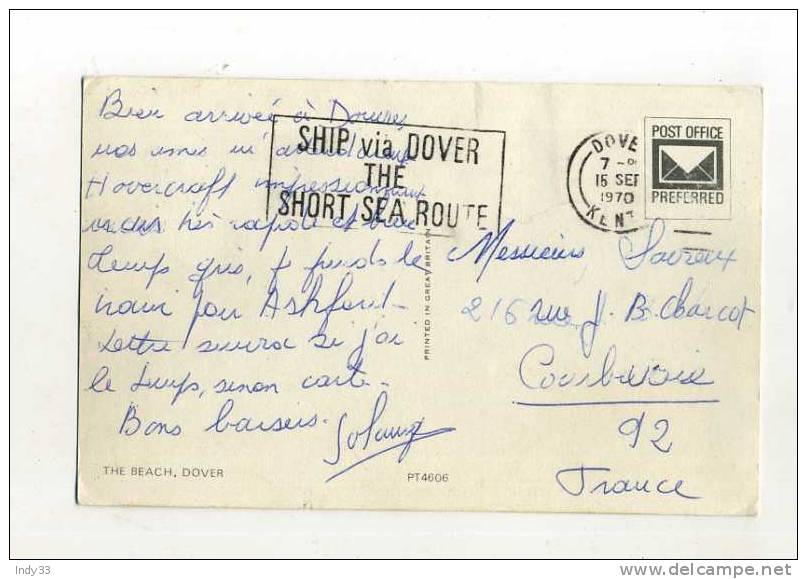 Bien arrivée à Douvres,
nos amis m'attendaient
Hovercraft impressionnant
mais très rapide et bien
temps gris, je prends le
train pour Ashford -
Lettre suivra si j'ai
le temps, sinon carte -
Bons baisers.
Solange
THE BEACH, DOVER
PT4606
PRINTED IN GREAT BRITAIN
SHIP via DOVER
THE
SHORT SEA ROUTE
DOVE
7-
15 SEP
1970
KENT
POST OFFICE
PREFERRED
Messieurs
216 rue J. B. Charcot
Courbevoie
92
France
Indy33
www.delcampe.net